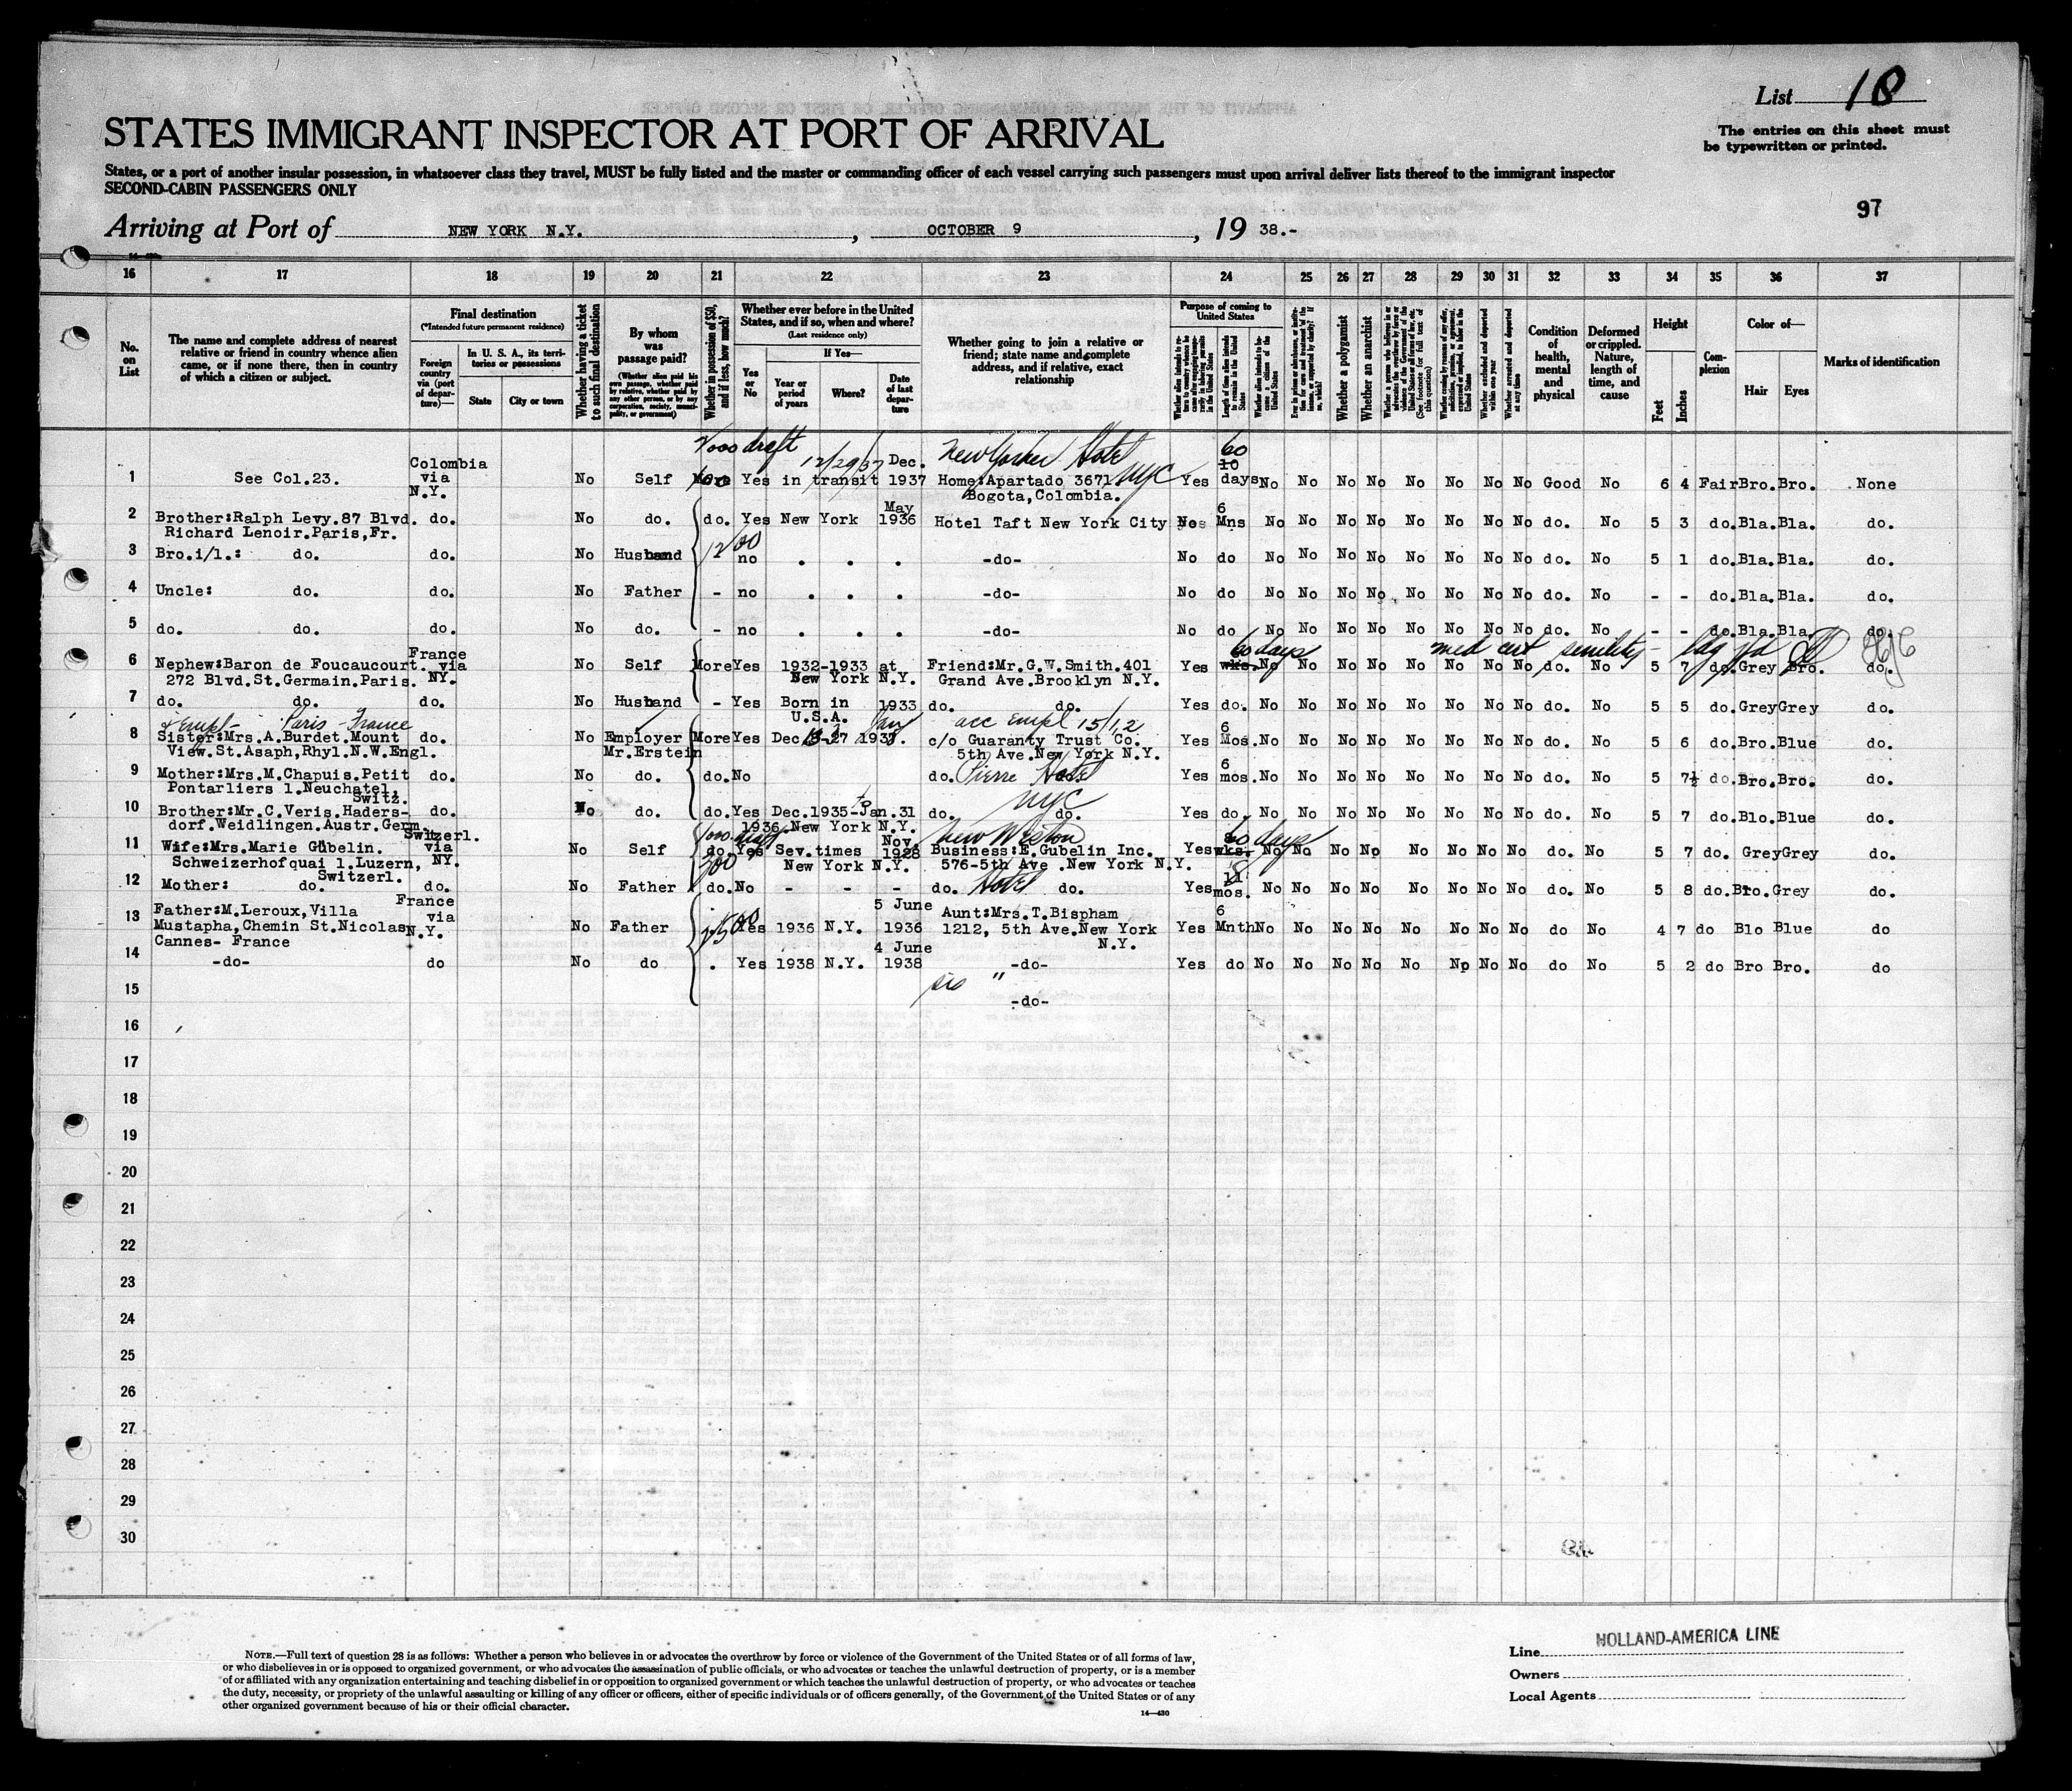 List 18
The entries on this sheet must
be typewritten or printed.
STATES IMMIGRANT INSPECTOR AT PORT OF ARRIVAL
States, or a port of another insular possession, in whatsoever class they travel, MUST be fully listed and the master or commanding officer of each vessel carrying such passengers must upon arrival deliver lists thereof to the immigrant inspector
SECOND-CABIN PASSENGERS ONLY
97
Arriving at Port of NEW YORK N.Y. , OCTOBER 9 , 19 38.-
16 17 18 19 20 21 22 23 24 25 26 27 28 29 30 31 32 33 34 35 36 37
No. on List
The name and complete address of nearest relative or friend in country whence alien came, or if none there, then in country of which a citizen or subject.
Final destination
(*Intended future permanent residence)
Foreign country via (port of departure)—
In U. S. A., its territories or possessions
State
City or town
Whether having a ticket to such final destination
By whom was passage paid?
(Whether alien paid his own passage, whether paid by relative, whether paid by any other person, or by any corporation, society, municipality, or government)
Whether in possession of $50, and if less, how much?
Whether ever before in the United States, and if so, when and where?
(Last residence only)
Yes or No
If Yes—
Year or period of years
Where?
Date of last departure
Whether going to join a relative or friend; state name and complete address, and if relative, exact relationship
Purpose of coming to United States
Length of time alien intends to remain in the United States
Whether alien intends to become a citizen of the United States
Whether a polygamist
Whether an anarchist
Whether excluded and deported within one year
Whether arrested and deported at any time
Condition of health, mental and physical
Deformed or crippled. Nature, length of time, and cause
Height
Feet
Inches
Complexion
Color of—
Hair
Eyes
Marks of identification
draft 12/29/37 New Yorker Hotel NYC 60
1 See Col.23. Colombia via N.Y. No Self More Yes in transit Dec. 1937 Home:Apartado 3671 Bogota,Colombia. Yes 10 days No No No No No No No No Good No 6 4 Fair Bro. Bro. None
2 Brother:Ralph Levy.87 Blvd. Richard Lenoir.Paris,Fr. do. No do. do. Yes New York May 1936 Hotel Taft New York City 6 Mns No No No No No No No No do. No 5 3 do. Bla. Bla. do.
3 Bro.i/l.: do. do. No Husband 1200 no . . . -do- No do No No No No No No No No do. No 5 1 do. Bla. Bla. do.
4 Uncle: do. do. No Father - no . . . -do- No do No No No No No No No No do. No - - do. Bla. Bla. do.
5 do. do. do. No do. - no . . . -do- No do No No No No No No No No do. No - - do. Bla. Bla. do.
60 days med cert senility
6 Nephew:Baron de Foucaucourt. 272 Blvd.St.Germain.Paris. France via NY. No Self More Yes 1932-1933 at New York N.Y. Friend:Mr.G.W.Smith.401 Grand Ave.Brooklyn N.Y. Yes wks. No No No No No No No No do. No 5 7 do. Grey Bro. do.
7 do. do. do. No Husband - Yes Born in U.S.A. 1933 do. do. Yes do. No No No No No No No No do. No 5 5 do. Grey Grey do.
& Empl- Paris - France acc empl 15/1,2
8 Sister:Mrs.A.Burdet.Mount View.St.Asaph,Rhyl.N.W.Engl. do. No Employer Mr.Erstein More Yes c/o Guaranty Trust Co. 5th Ave.New York N.Y. Yes 6 Mos. No No No No No No No No do. No 5 6 do. Bro. Blue do.
9 Mother:Mrs.M.Chapuis.Petit Pontarliers 1.Neuchatel, Switz. do. No do. do. No do. Pierre Hotel NYC Yes 6 mos. No No No No No No No No do. No 5 7½ do. Bro. Bro. do.
10 Brother:Mr.C.Veris.Hadersdorf.Weidlingen.Austr.Germ. do. No do. do. Yes Dec.1935 to Jan.31 1936 New York N.Y. do. do. Yes do. No No No No No No No No do. No 5 7 do. Blo. Blue do.
New Weston Hotel 60 days
11 Wife:Mrs.Marie Gübelin. Schweizerhofquai 1.Luzern, Switzerl. Switzerl. via NY. No Self do. Yes Sev.times New York N.Y. Nov 1928 Business:E.Gubelin Inc. 576-5th Ave .New York N.Y. Yes wks. No No No No No No No No do. No 5 7 do. Grey Grey do.
12 Mother: do. do. No Father do. No - - - do. do. Yes mos. No No No No No No No No do. No 5 8 do. Bro. Grey do.
13 Father:M.Leroux,Villa Mustapha,Chemin St.Nicolas Cannes- France France via N.Y. No Father Yes 1936 N.Y. 5 June 1936 Aunt:Mrs.T.Bispham 1212, 5th Ave.New York N.Y. Yes 6 Mnth No No No No No No No No do No 4 7 do Blo Blue do
14 -do- do No do . Yes 1938 N.Y. 4 June 1938 -do- Yes do No No No No No No No No do No 5 2 do Bro Bro. do
15 -do-
16
17
18
19
20
21
22
23
24
25
26
27
28
29
30
NOTE.—Full text of question 28 is as follows: Whether a person who believes in or advocates the overthrow by force or violence of the Government of the United States or of all forms of law,
or who disbelieves in or is opposed to organized government, or who advocates the assassination of public officials, or who advocates or teaches the unlawful destruction of property, or is a member
of or affiliated with any organization entertaining and teaching disbelief in or opposition to organized government or which teaches the unlawful destruction of property, or who advocates or teaches
the duty, necessity, or propriety of the unlawful assaulting or killing of any officer or officers, either of specific individuals or of officers generally, of the Government of the United States or of any
other organized government because of his or their official character.
14—430
Line HOLLAND-AMERICA LINE
Owners
Local Agents